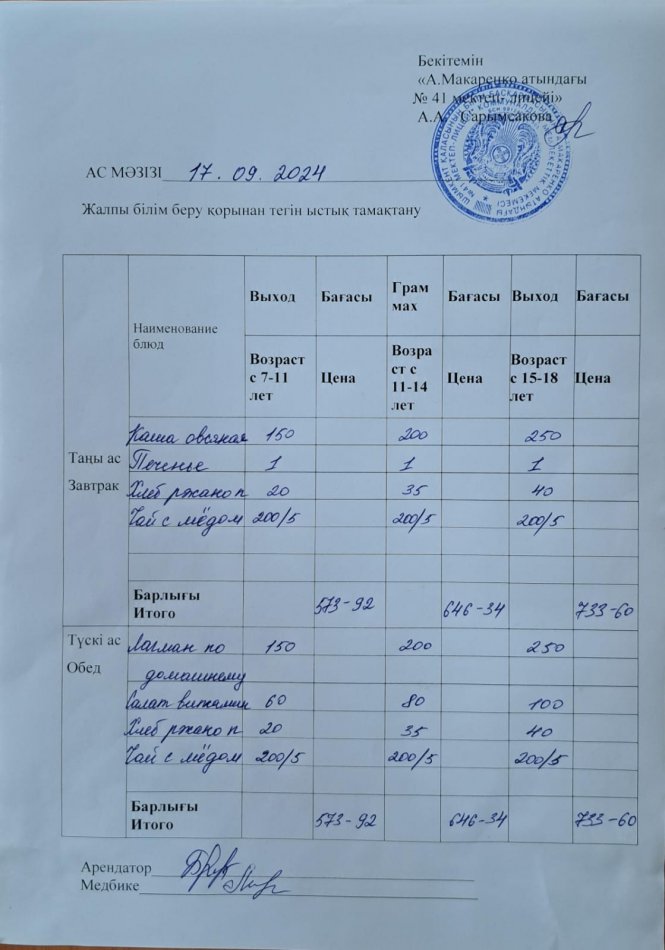 Бекітемін
«А.Макаренко атындағы
№ 41 мектеп- лицейі»
А.А. Сарымсакова
АС МӘЗІЗІ 17. 09. 2024
Жалпы білім беру қорынан тегін ыстық тамақтану
Наименование блюд Выход Бағасы Грам мах Бағасы Выход Бағасы
Возраст с 7-11 лет Цена Возра ст с 11-14 лет Цена Возраст с 15-18 лет Цена
Таңы ас
Завтрак
Каша овсяная 150 200 250
Печенье 1 1 1
Хлеб ржано п 20 35 40
Чай с мёдом 200/5 200/5 200/5
Барлығы
Итого 573-92 646-34 733-60
Түскі ас
Обед
Лагман по 150 200 250
домашнему
Салат витамин 60 80 100
Хлеб ржано п 20 35 40
Чай с мёдом 200/5 200/5 200/5
Барлығы
Итого 573-92 646-34 733-60
Арендатор
Медбике